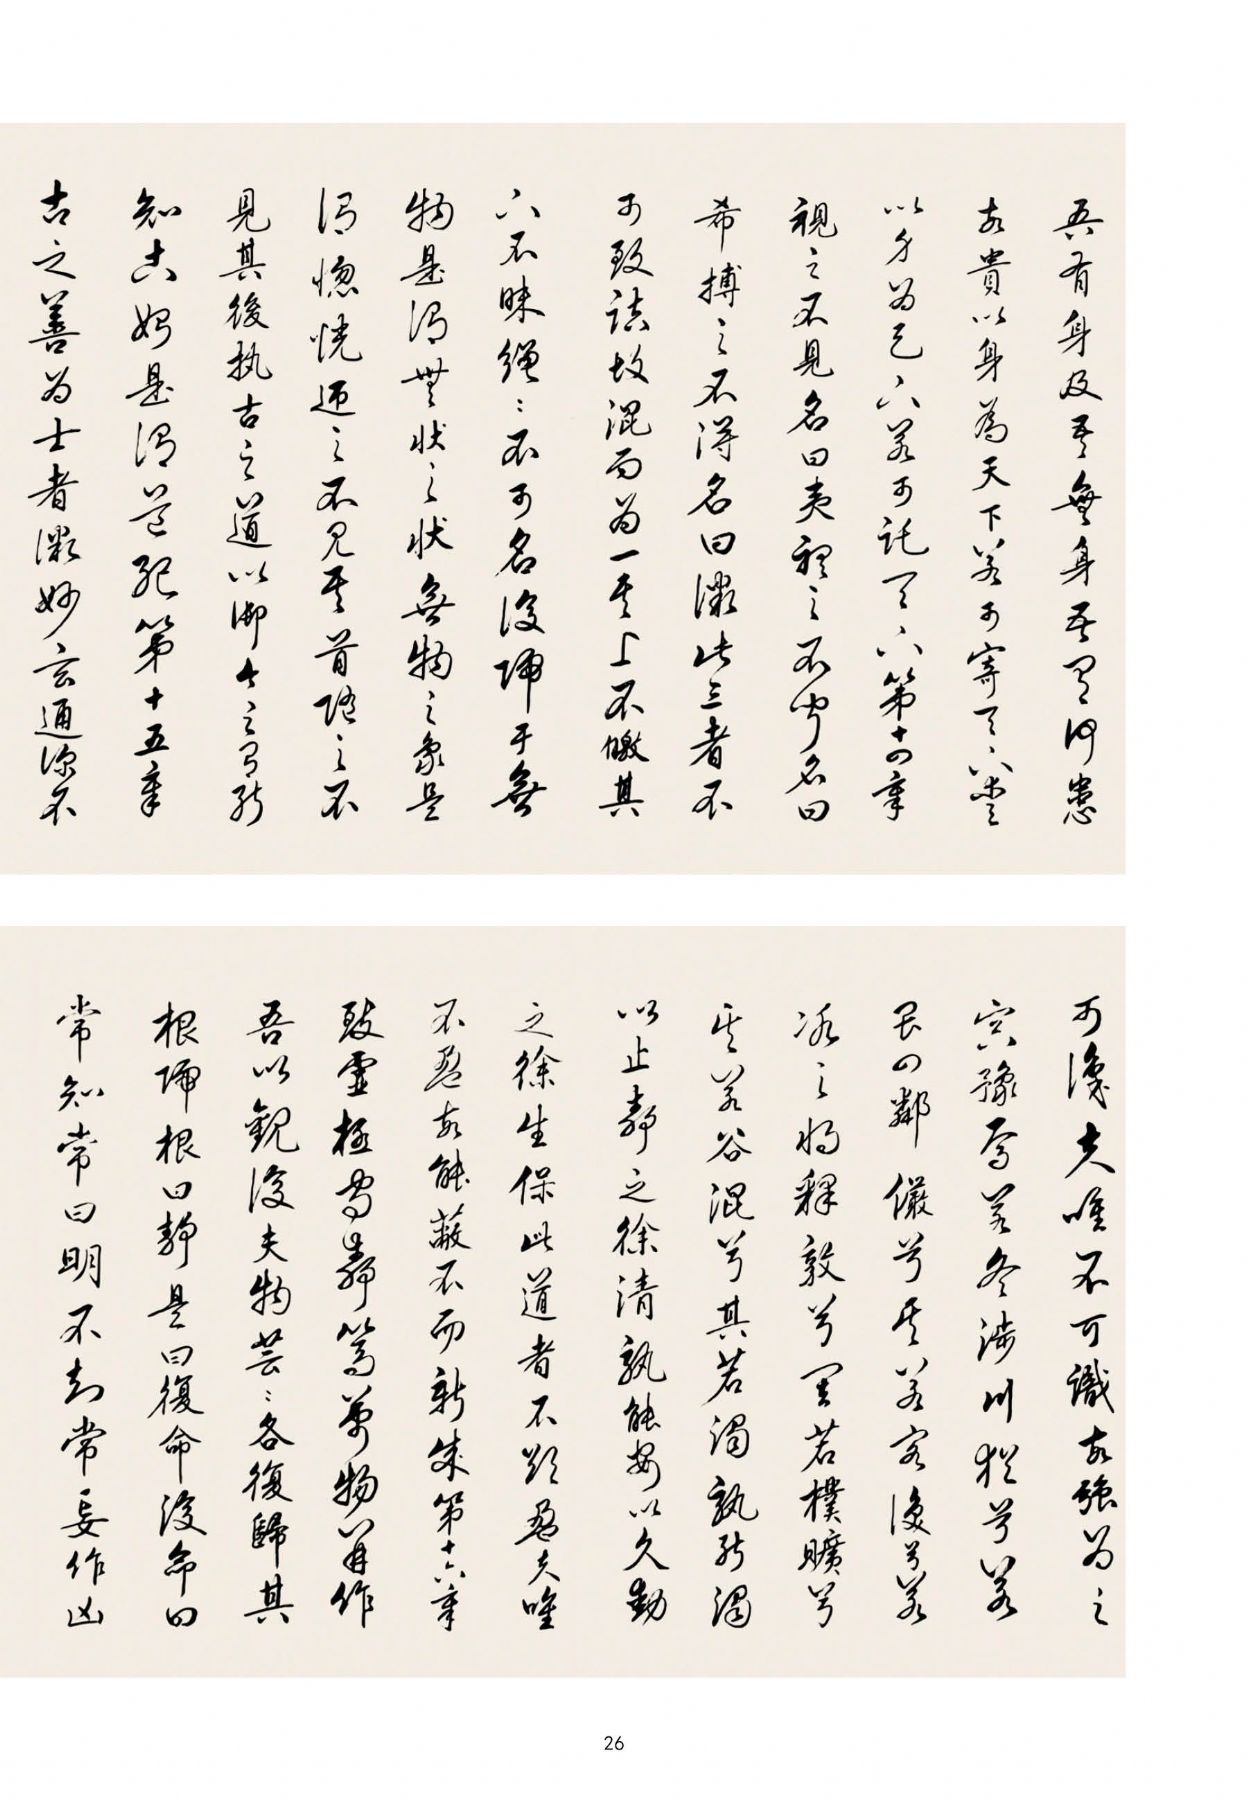 吾有身及吾無身吾有何患
故貴以身為天下若可寄天下愛
以身为天下若可託天下第十四章
視之不見名曰夷聽之不聞名曰
希搏之不得名曰微此三者不
可致詰故混而为一其上不皦其
下不昧繩繩不可名復歸于無
物是謂無狀之状無物之象是
謂惚恍迎之不見其首随之不
見其後执古之道以御今之有能
知古始是謂道紀第十五章
古之善为士者微妙玄通深不
可識夫唯不可識故強为之
容豫焉若冬涉川猶兮若
畏四鄰儼兮其若客渙兮若
冰之將釋敦兮其若樸曠兮
其若谷混兮其若濁孰能濁
以止靜之徐清孰能安以久動
之徐生保此道者不欲盈夫唯
不盈故能蔽不而新成第十六章
致虛極守靜篤萬物並作
吾以觀復夫物芸芸各復歸其
根歸根曰靜是曰復命復命曰
常知常曰明不知常妄作凶
26